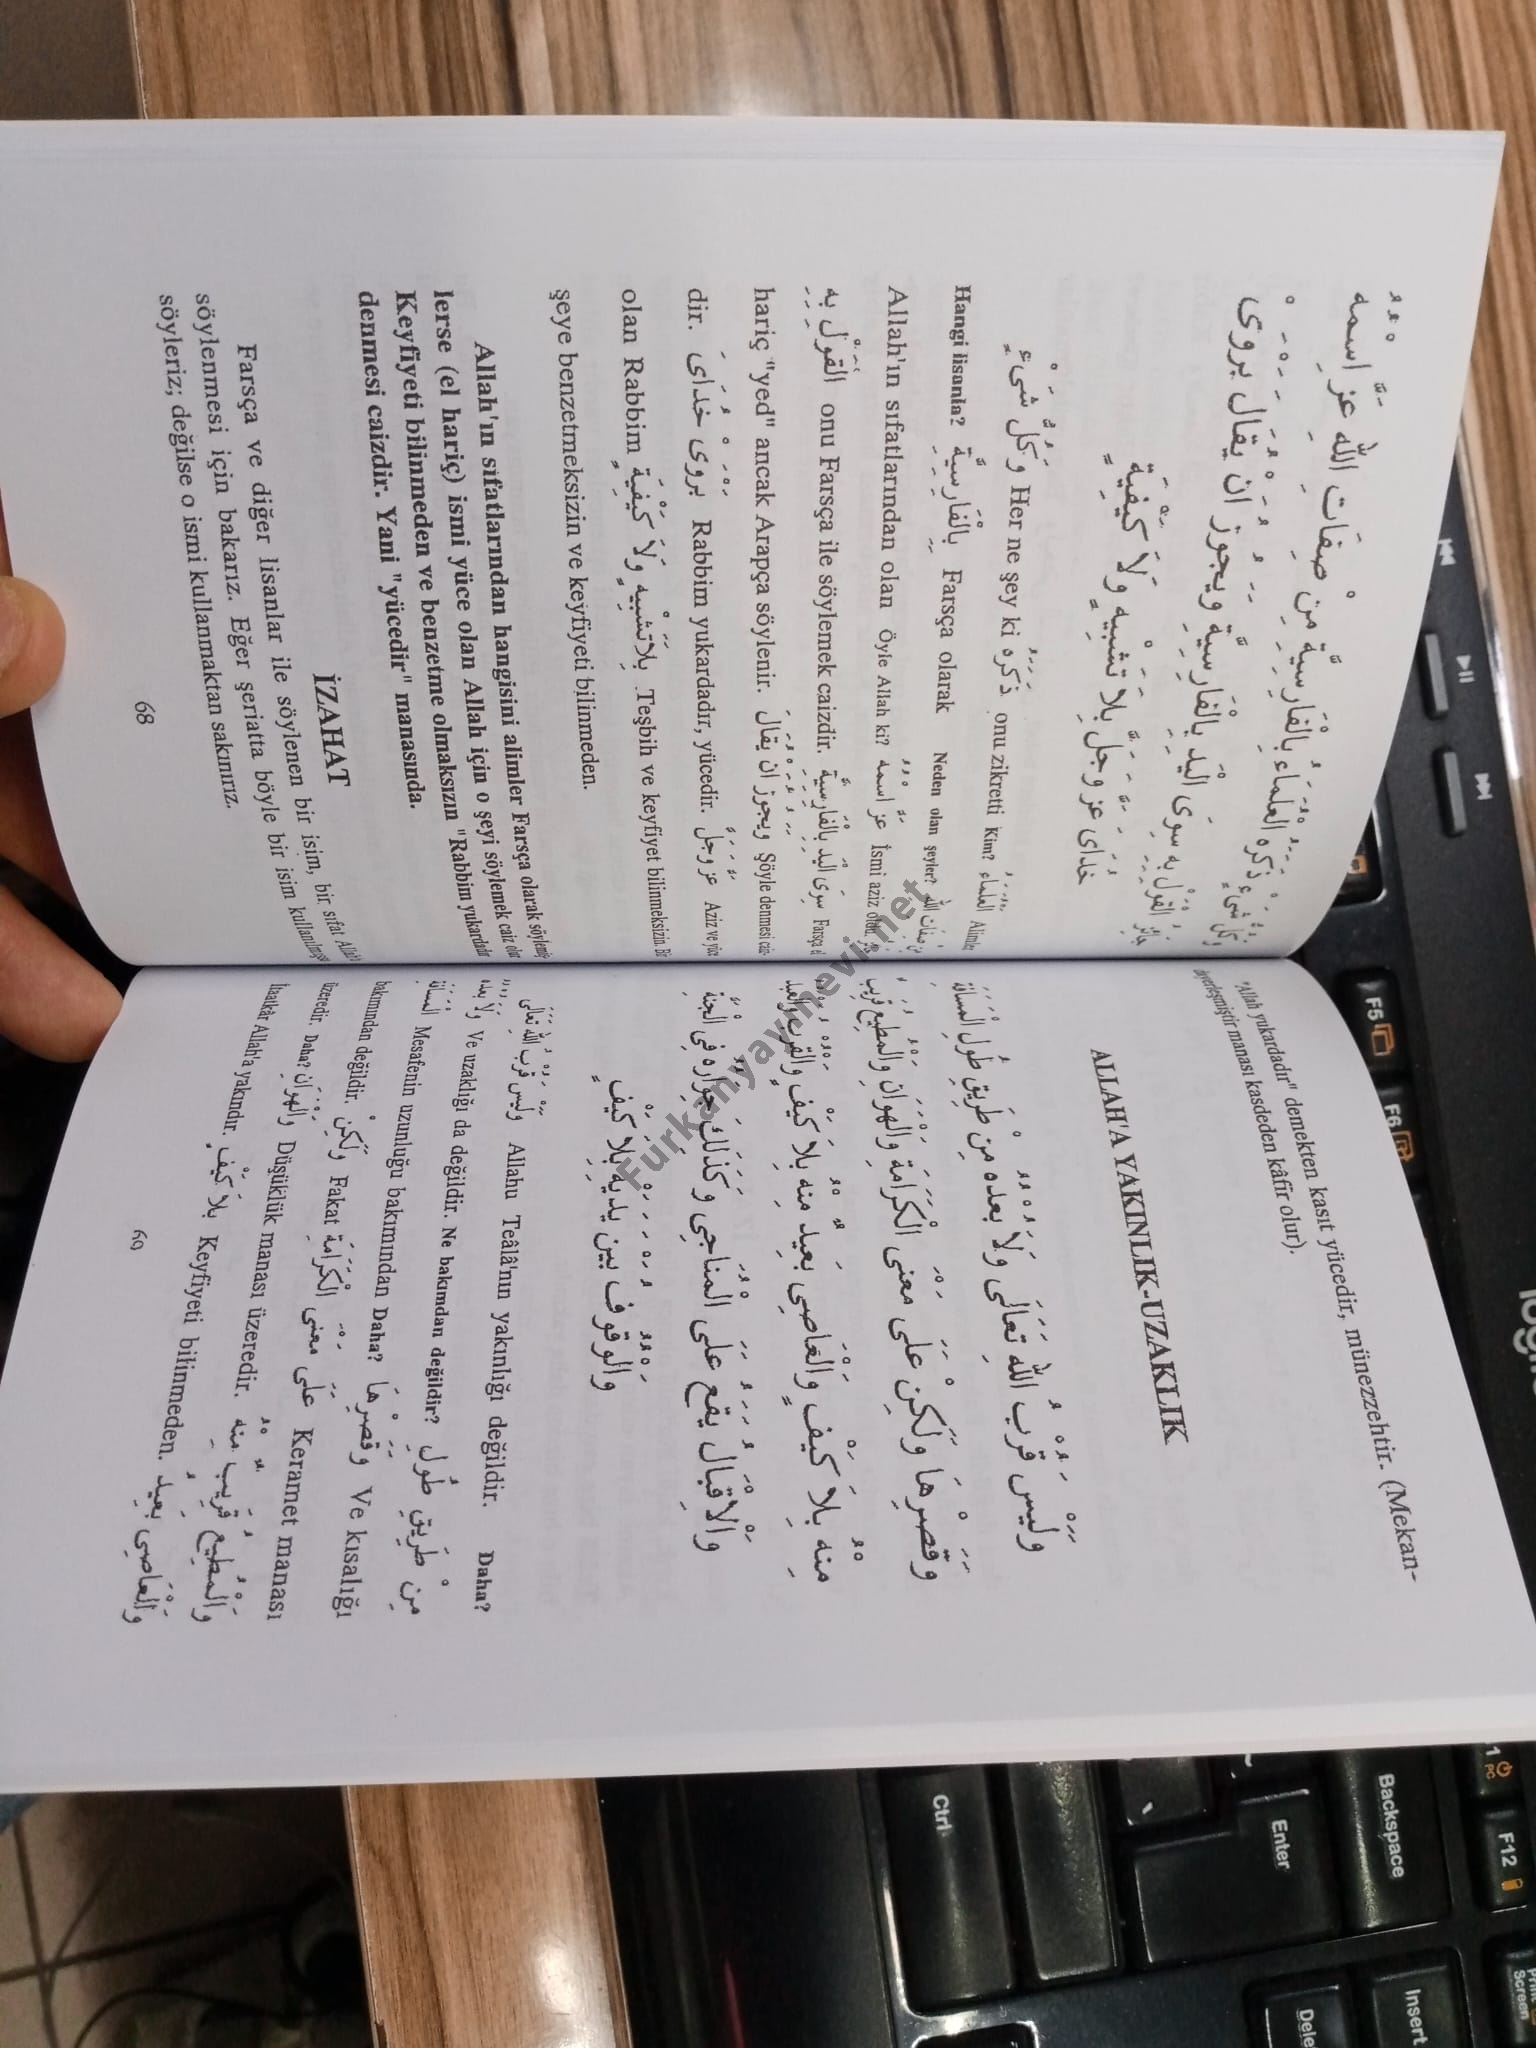 وَكُلُّ شَىْءٍ ذَكَرَهُ الْعُلَمَاءُ بِالْفَارِسِيَّةِ مِنْ صِفَاتِ اللهِ عَزَّ اسْمُهُ
جَائِزٌ الْقَوْلُ بِهِ سِوَى الْيَدِ بِالْفَارِسِيَّةِ وَيَجُوزُ اَنْ يُقَالَ بَرْوَىْ
خُدَاىَ عَزَّ وَجَلَّ بِلَا تَشْبِيهٍ وَلَا كَيْفِيَّةٍ
وَكُلُّ شَىْءٍ Her ne şey ki ذَكَرَهُ onu zikretti Kim? الْعُلَمَاءُ Alimler
Hangi lisanla? بِالْفَارِسِيَّةِ Farsça olarak Neden olan şeyler? مِنْ صِفَاتِ اللهِ
Allah'ın sıfatlarından olan Öyle Allah ki? عَزَّ اسْمُهُ İsmi aziz olan.
الْقَوْلُ بِهِ onu Farsça ile söylemek caizdir. سِوَى الْيَدِ بِالْفَارِسِيَّةِ Farsça el
hariç "yed" ancak Arapça söylenir. وَيَجُوزُ اَنْ يُقَالَ Şöyle denmesi caiz-
dir. بَرْوَىْ خُدَاىَ Rabbim yukardadır, yücedir. عَزَّ وَجَلَّ Aziz ve yüce
olan Rabbim بِلَاتَشْبِيهٍ وَلَا كَيْفِيَّةٍ Teşbih ve keyfiyet bilinmeksizin. Bir
şeye benzetmeksizin ve keyfiyeti bilinmeden.
Allah'ın sıfatlarından hangisini alimler Farsça olarak söylemiş-
lerse (el hariç) ismi yüce olan Allah için o şeyi söylemek caiz olur.
Keyfiyeti bilinmeden ve benzetme olmaksızın "Rabbim yukardadır"
denmesi caizdir. Yani "yücedir" manasında.
İZAHAT
Farsça ve diğer lisanlar ile söylenen bir isim, bir sıfat Allah'a
söylenmesi için bakarız. Eğer şeriatta böyle bir isim kullanılmışsa
söyleriz; değilse o ismi kullanmaktan sakınırız.
68
"Allah yukardadır" demekten kasıt yücedir, münezzehtir. (Mekan-
da yerleşmiştir manası kasdeden kâfir olur).
ALLAH'A YAKINLIK-UZAKLIK
وَلَيْسَ قُرْبُ اللهِ تَعَالَى وَلَا بُعْدُهُ مِنْ طَرِيقِ طُولِ الْمَسَافَةِ
وَقِصَرِهَا وَلَكِنْ عَلَى مَعْنَى الْكَرَامَةِ وَالْهَوَانِ وَالْمُطِيعُ قَرِيبٌ
مِنْهُ بِلَا كَيْفٍ وَالْعَاصِى بَعِيدٌ مِنْهُ بِلَا كَيْفٍ وَالْقُرْبُ وَالْبُعْدُ
وَالْاِقْبَالُ يَقَعُ عَلَى الْمُنَاجِى وَكَذَلِكَ جِوَارُهُ فِى الْجَنَّةِ
وَالْوُقُوفُ بَيْنَ يَدَيْهِ بِلَا كَيْفٍ
وَلَيْسَ قُرْبُ اللهِ تَعَالَى Allahu Teâlâ'nın yakınlığı değildir. Daha?
وَلَا بُعْدُهُ Ve uzaklığı da değildir. Ne bakımdan değildir? مِنْ طَرِيقِ طُولِ
الْمَسَافَةِ Mesafenin uzunluğu bakımından Daha? وَقِصَرِهَا Ve kısalığı
bakımından değildir. وَلَكِنْ Fakat عَلَى مَعْنَى الْكَرَامَةِ Keramet manası
üzeredir. Daha? وَالْهَوَانِ Düşüklük manası üzeredir. وَالْمُطِيعُ قَرِيبٌ مِنْهُ
İtaatkâr Allah'a yakındır. بِلَا كَيْفٍ Keyfiyeti bilinmeden. وَالْعَاصِى بَعِيدٌ
69
Furkanyayinevi.net
F5
F6
F12
Backspace
Enter
Ctrl
Insert
Print
Screen
PC